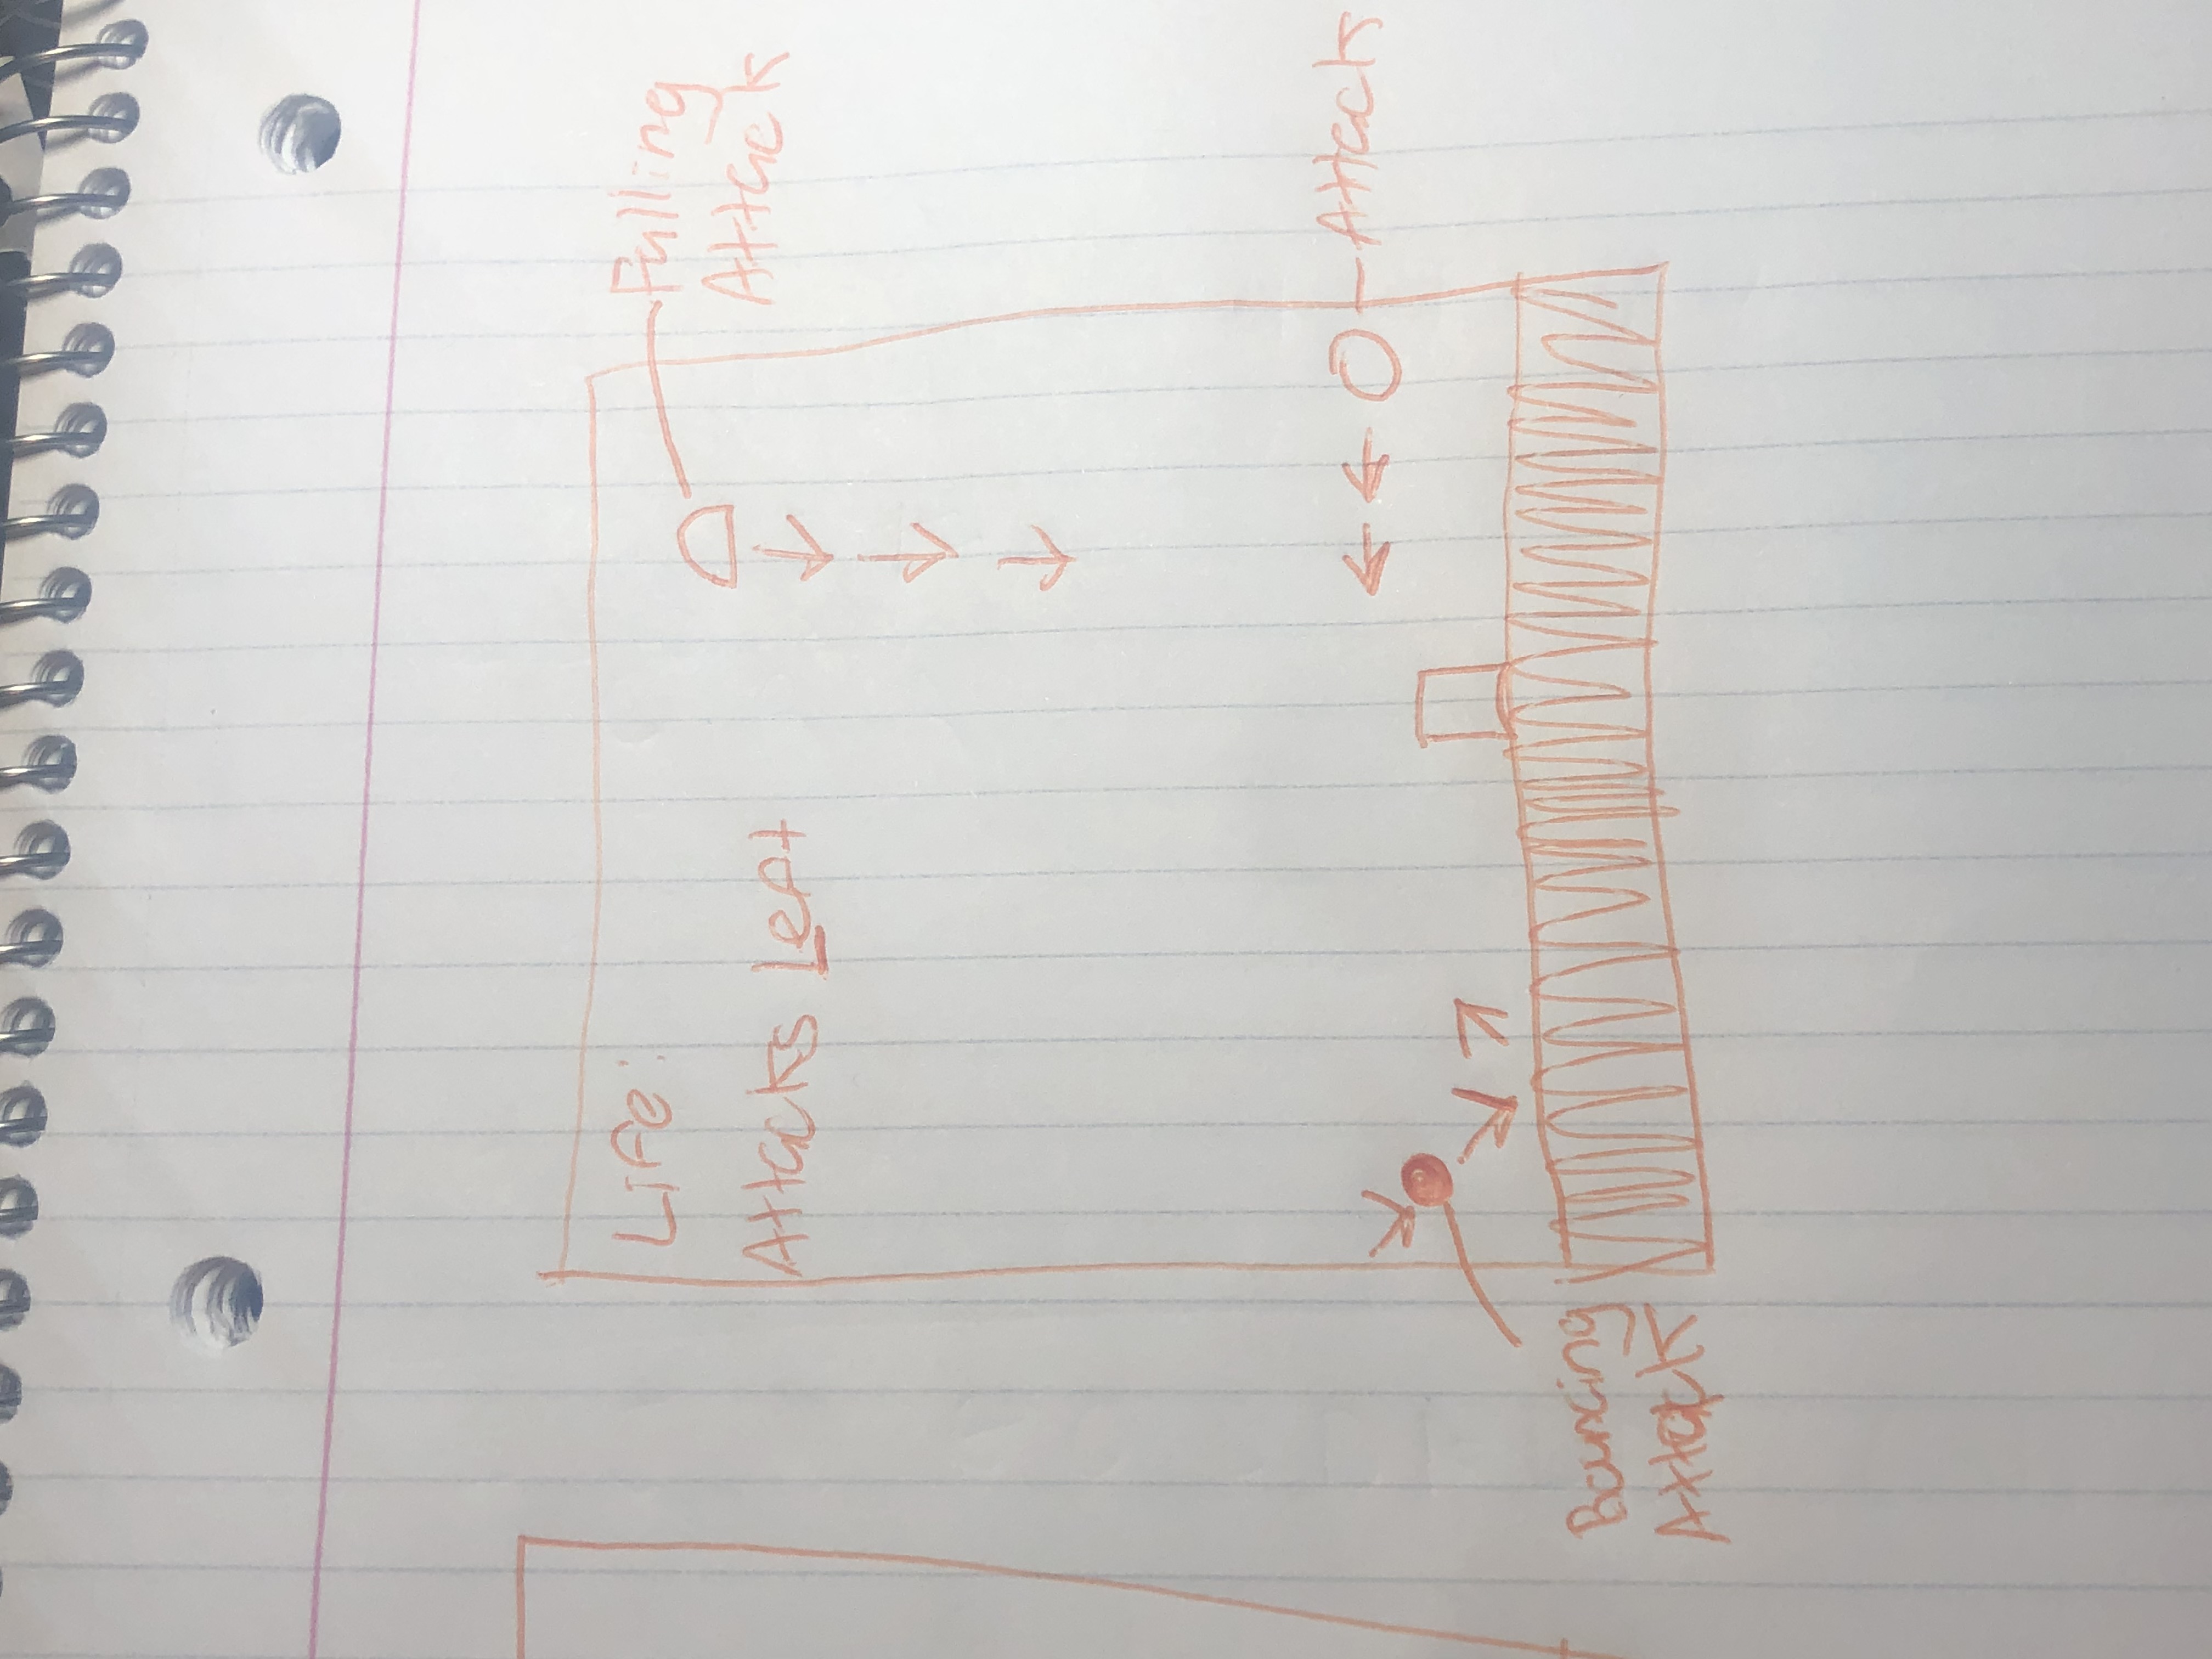 Life:
Attacks Left
Falling
Attack
Attack
Bouncing
Attack